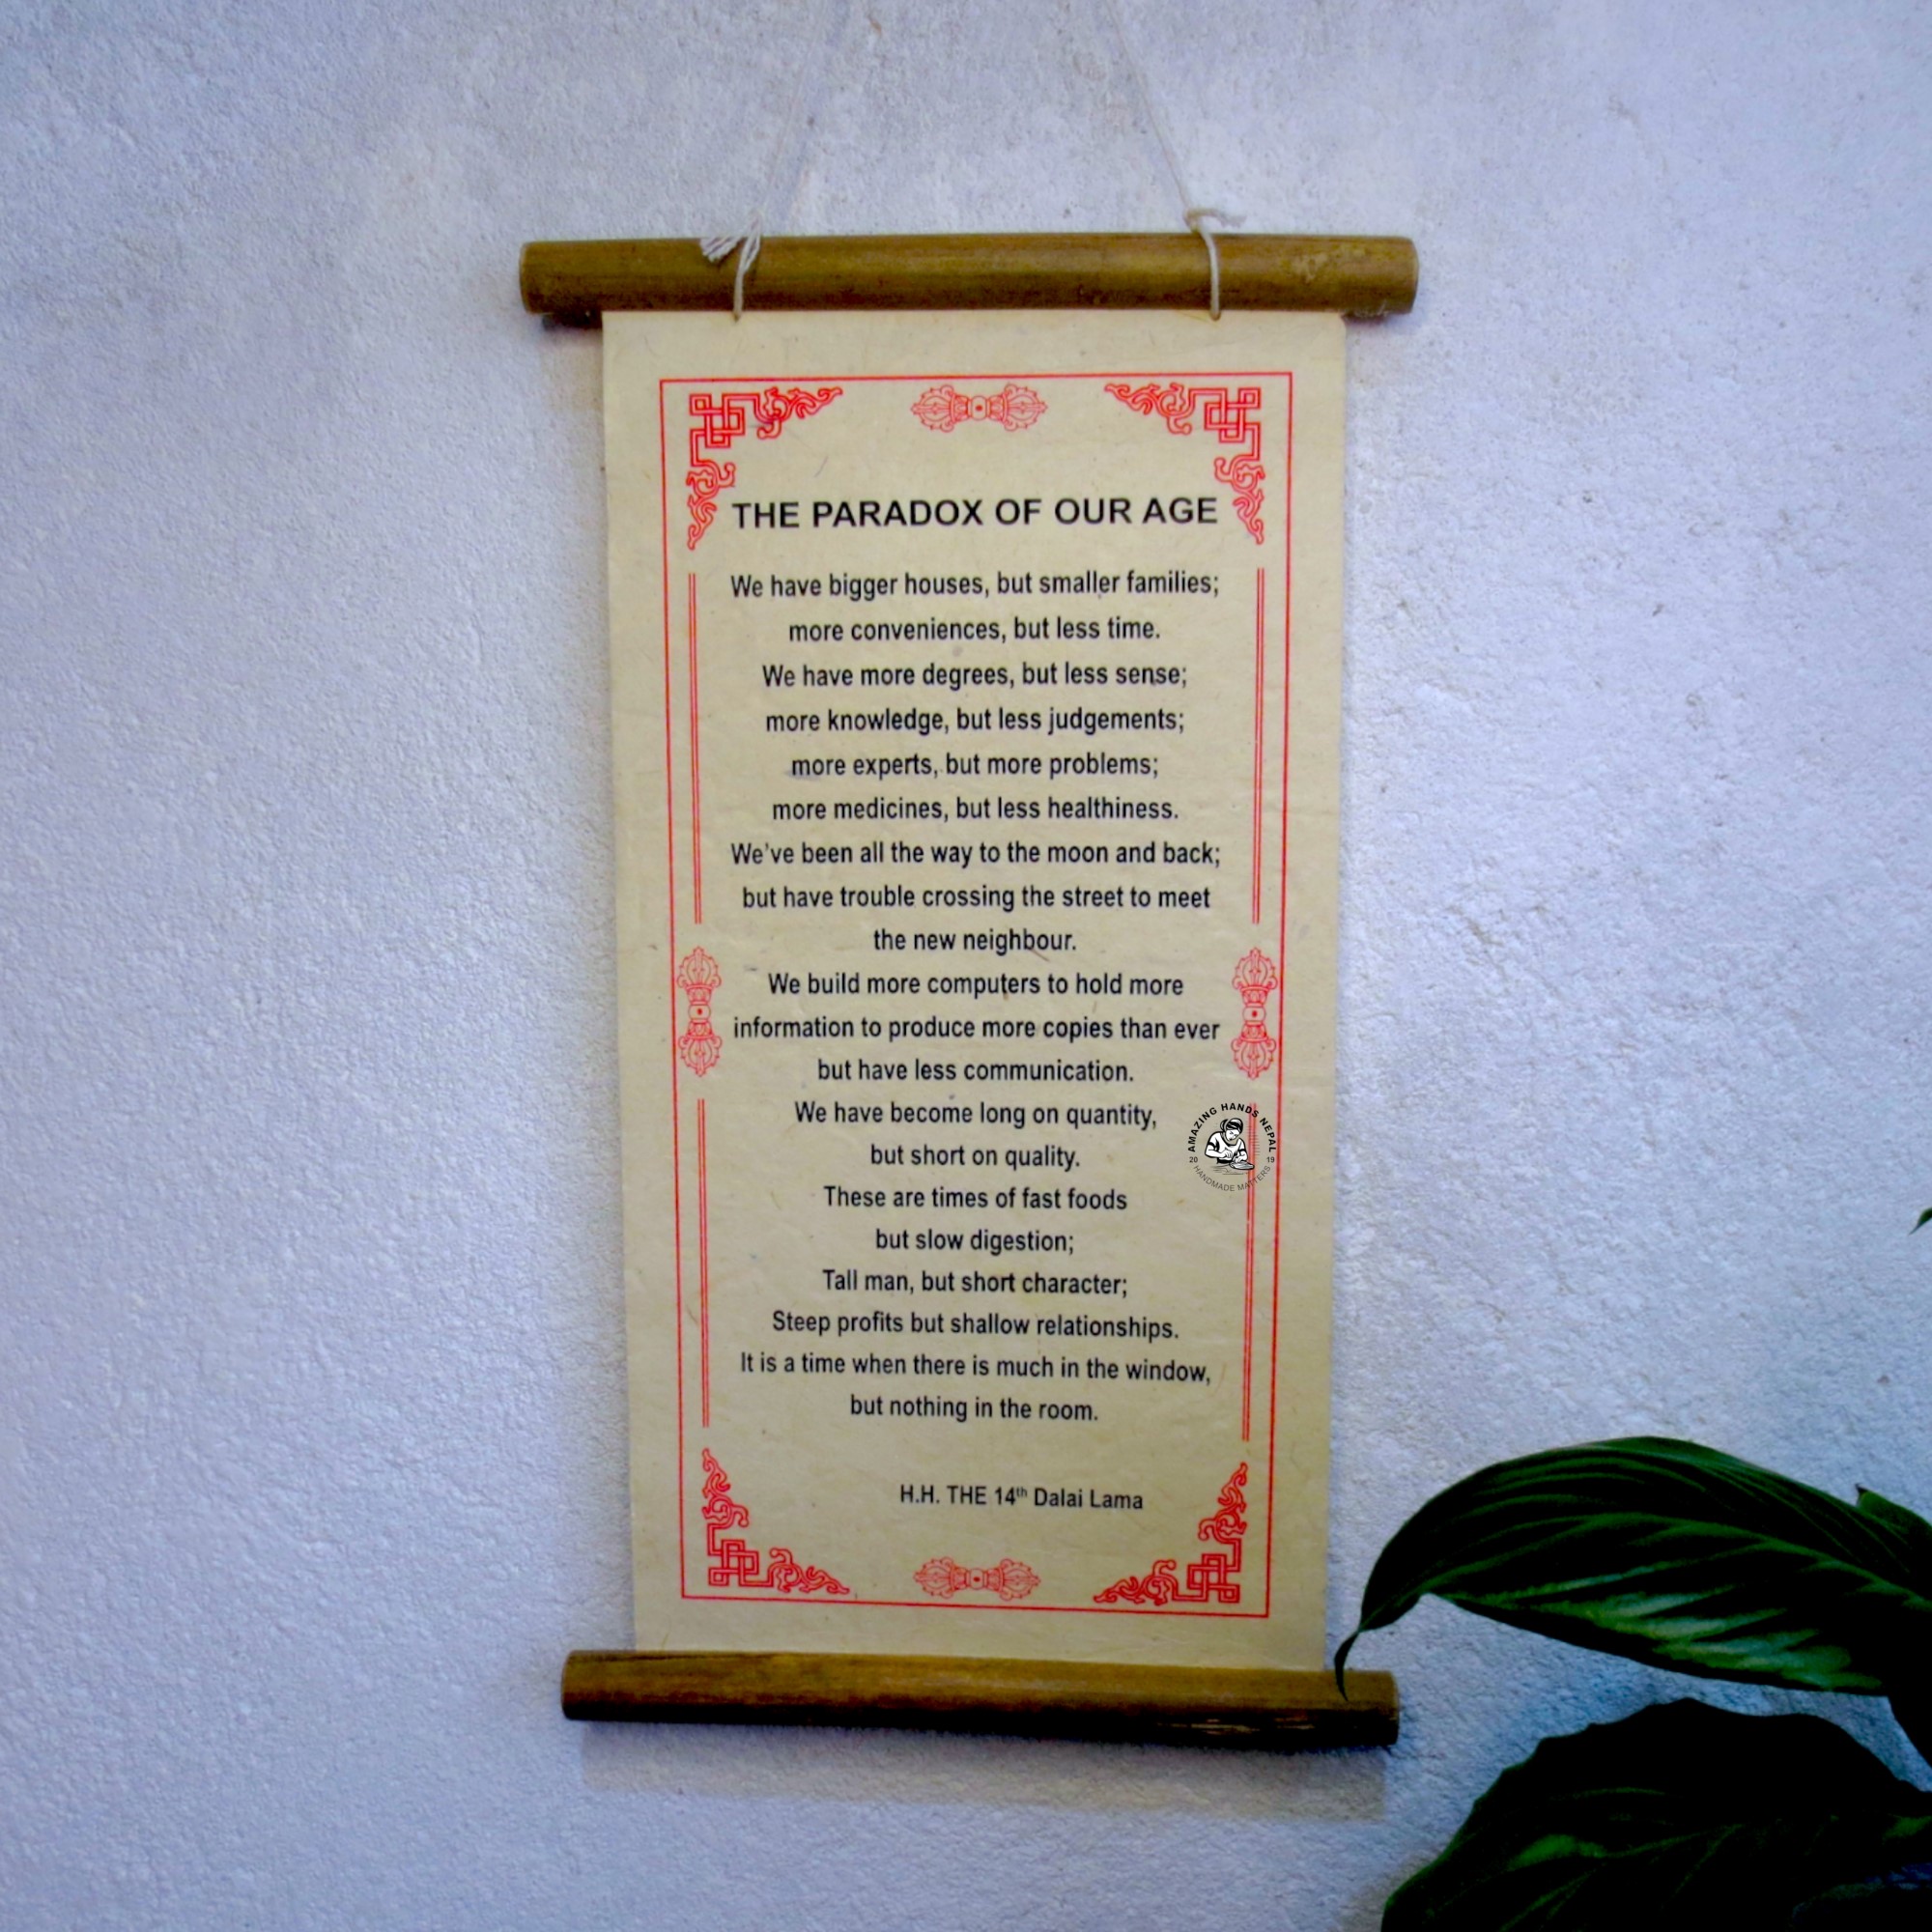 THE PARADOX OF OUR AGE
We have bigger houses, but smaller families;
more conveniences, but less time.
We have more degrees, but less sense;
more knowledge, but less judgements;
more experts, but more problems;
more medicines, but less healthiness.
We've been all the way to the moon and back;
but have trouble crossing the street to meet
the new neighbour.
We build more computers to hold more
information to produce more copies than ever
but have less communication.
We have become long on quantity,
but short on quality.
These are times of fast foods
but slow digestion;
Tall man, but short character;
Steep profits but shallow relationships.
It is a time when there is much in the window,
but nothing in the room.
H.H. THE 14th Dalai Lama
AMAZING HANDS NEPAL
20 19
HANDMADE MATTERS